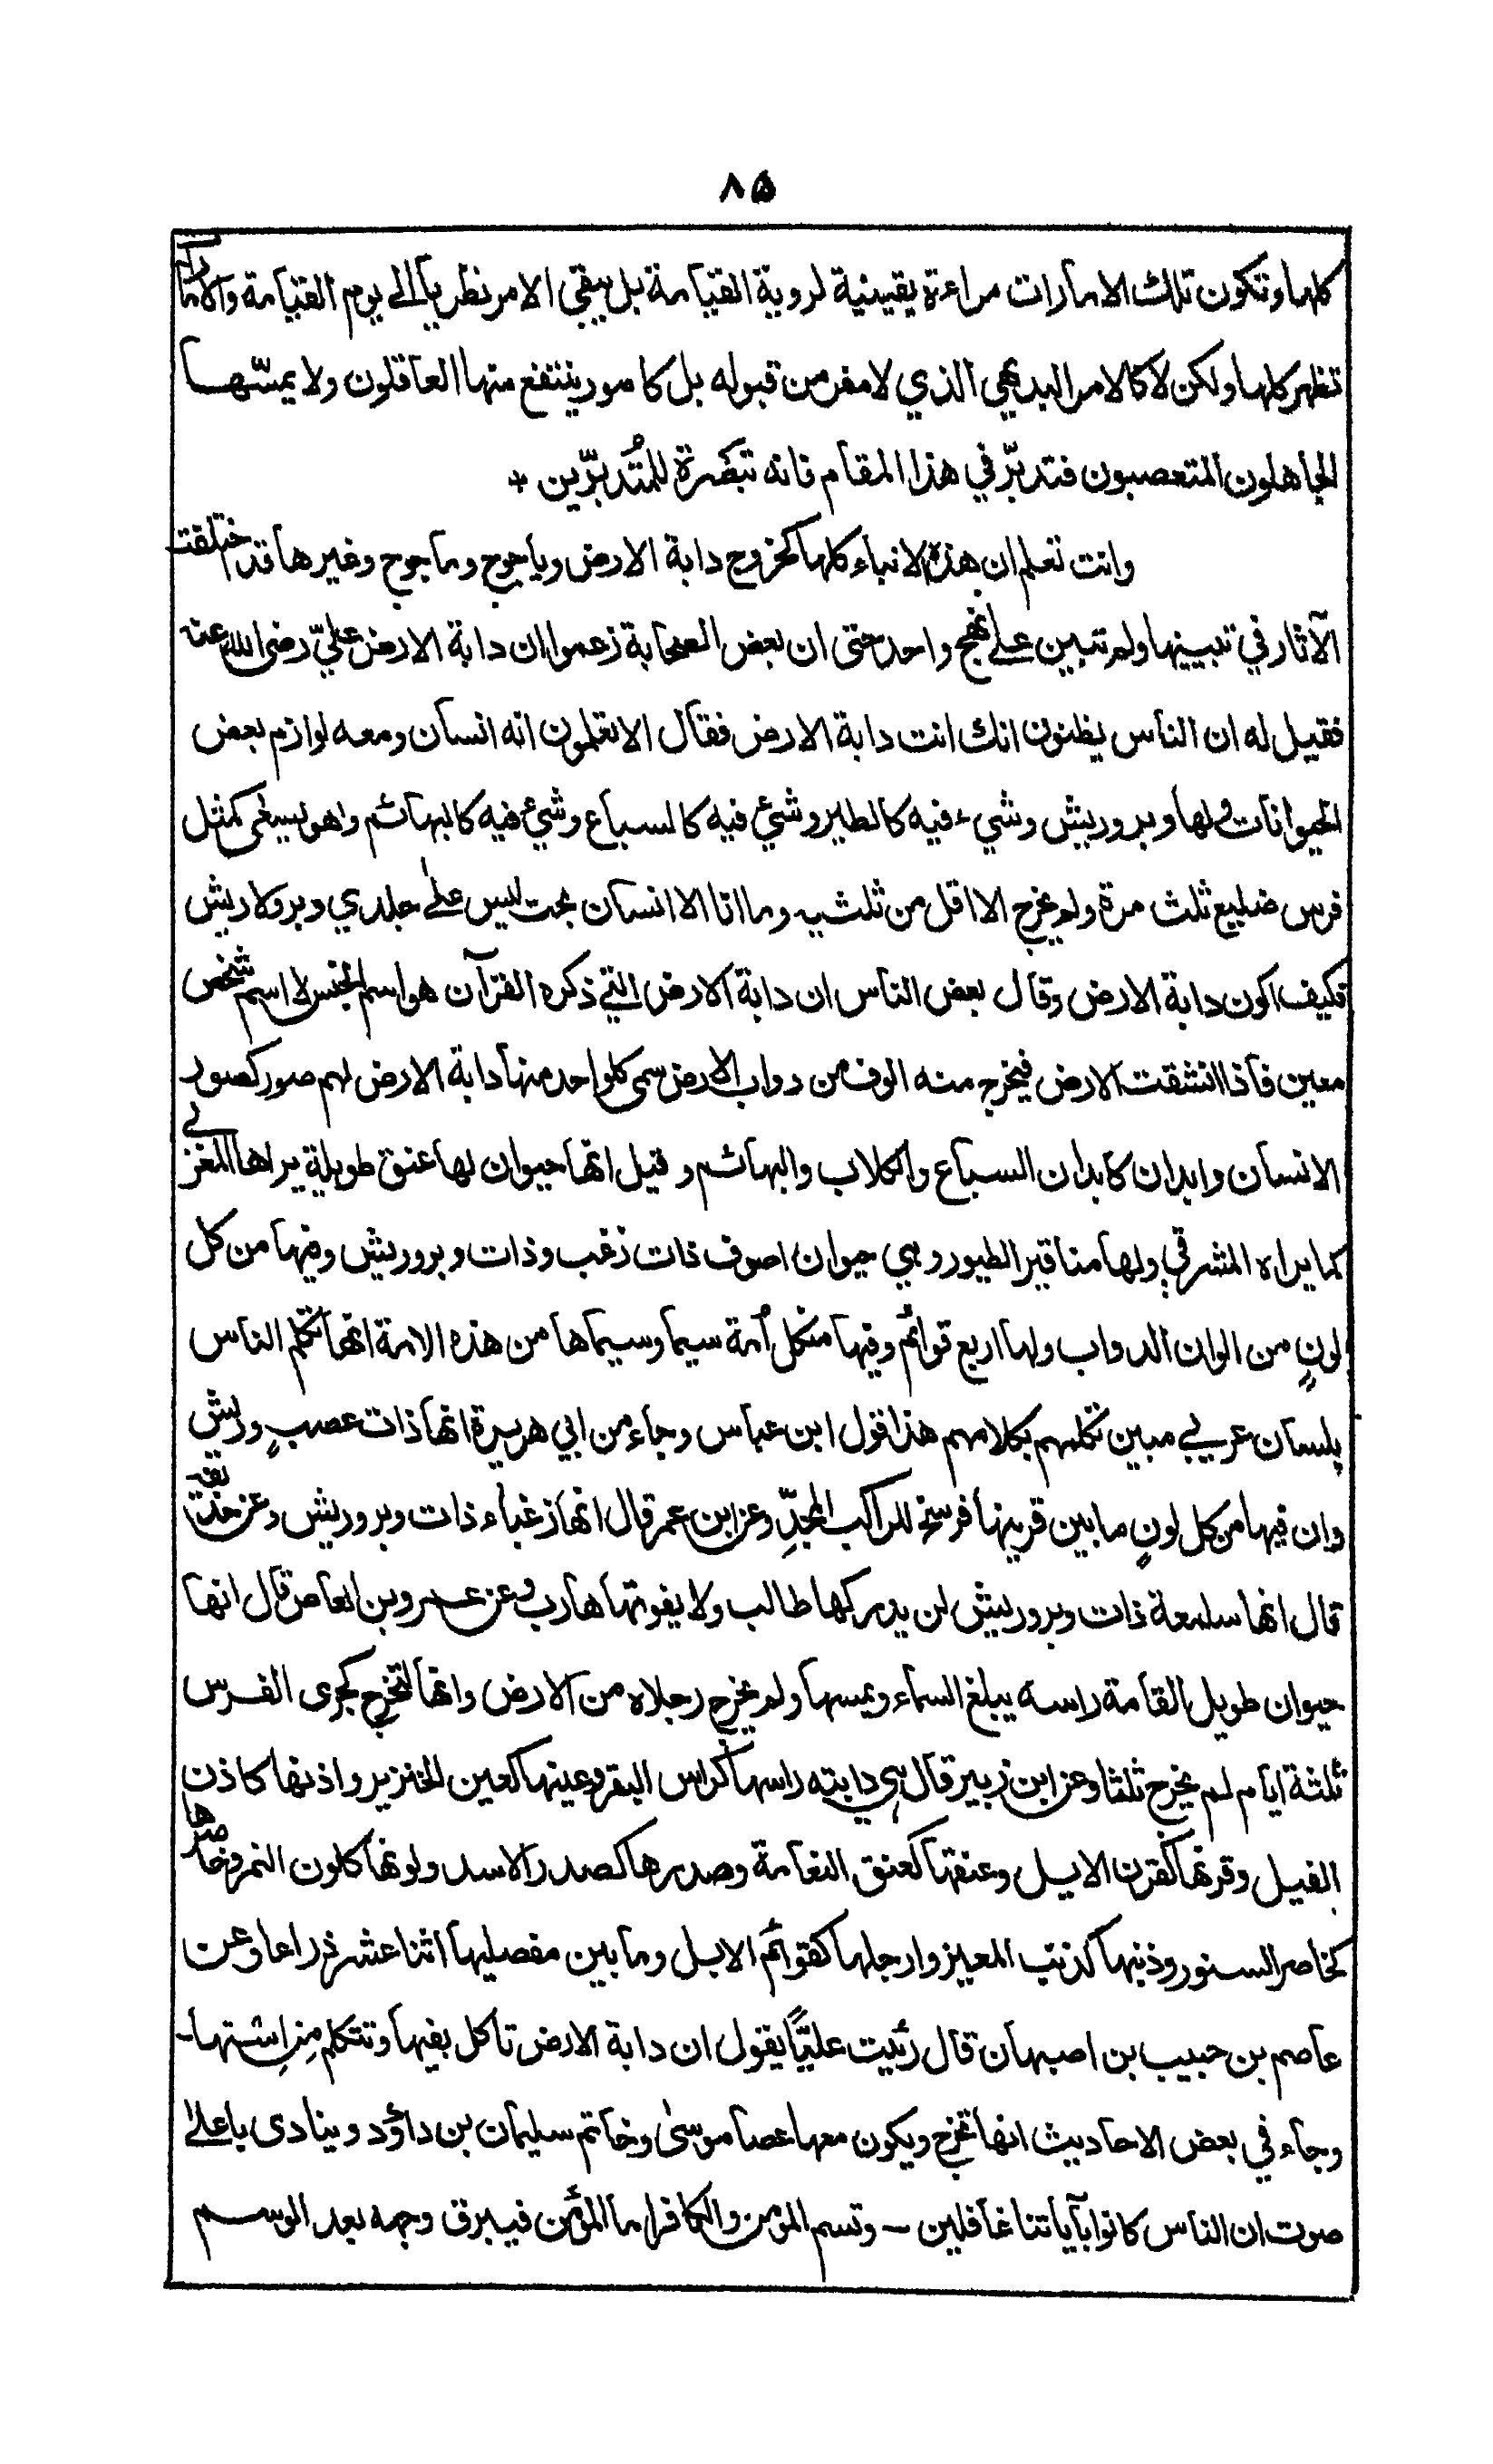 ٨٥
كلها وتكون تلك الامارات مراءة يقينية لروية القيامة بل يبقى الامر نظريا الى يوم القيامة والامارات
تظهر كلها ولكن لا كالامر البديهي الذي لا مفر من قبوله بل كامور ينتفع منها العاقلون ولا يمسّها
الجاهلون المتعصبون فتدبّر في هذا المقام فانه تبصرة للمُتدبّرين +
وانت تعلم ان هذه الانباء كلها كخروج دابة الارض وياجوج وماجوج وغيرها قد اختلفت
الآثار في تبيينها ولم تتبين على نهج واحد حتى ان بعض الصحابة زعموا ان دابة الارض عليّ رضى الله عنه
فقيل له ان الناس يظنون انك انت دابة الارض فقال الا تعلمون انه انسان ومعه لوازم بعض
الحيوانات ولها وبر وريش وشيء فيه كالطير وشيء فيه كالسباع وشيء فيه كالبهائم وهو يسعى كمثل
فرس ضليع ثلث مرة ولم يخرج الا اقل من ثلثيه وما انا الا انسان بحت ليس على جلدي وبر ولا ريش
فكيف اكون دابة الارض وقال بعض الناس ان دابة الارض التي ذكره القرآن هو اسم الجنس لا اسم شخص
معين فاذا انشقت الارض فيخرج منه الوف من دواب الارض سمى كل واحد منها دابة الارض لهم صور كصور
الانسان وابدان كابدان السباع والكلاب والبهائم وقيل انها حيوان لها عنق طويلة يراها المغربي
كما يراه المشرقي ولها مناقير الطيور وهي حيوان اصوف ذات زغب وذات وبر وريش وفيها من كل
لونٍ من الوان الدواب ولها اربع قوائم وفيها من كل اُمة سيما وسيماها من هذه الامة انها تكلم الناس
بلسان عربي مبين تكلمهم بكلامهم هذا قول ابن عباس وجاء من ابي هريرة انها ذات عصبٍ وريش
وان فيها من كل لونٍ ما بين قرنيها فرسخ للراكب المجدِّ وعن ابن عمر قال انها زغباء ذات وبر وريش وعن حذيفة
قال انها ملمعة ذات وبر وريش لن يدركها طالب ولا يفوتها هارب وعن عمرو بن العاص قال انها
حيوان طويل القامة راسه يبلغ السماء ويمسها ولم يخرج رجلاه من الارض وانها لتخرج كجرى الفرس
ثلثة ايام لم يخرج ثلثها وعن ابن زبير قال هي دابته راسها كراس البقر وعينها كعين الخنزير واذنها كاذن
الفيل وقرنها كقرن الايل وعنقها كعنق النعامة وصدرها كصدر الاسد ولونها كلون النمر وخاصرها
كخاصر السنور وذنبها كذنب المعيز وارجلها كقوائم الابل وما بين مفصليها اثنا عشر ذراعا وعن
عاصم بن حبيب بن اصبهان قال رئيت عليًّا يقول ان دابة الارض تاكل بفيها وتتكلم مِن اِستها۔
وجاء في بعض الاحاديث انها تخرج ويكون معها عصا موسىٰ وخاتم سليمان بن داؤد وينادى باعلىٰ
صوت ان الناس كانوا بآياتنا غافلين – وتسم المؤمن والكافر اما المؤمن فيبرق وجهه بعد الوسم